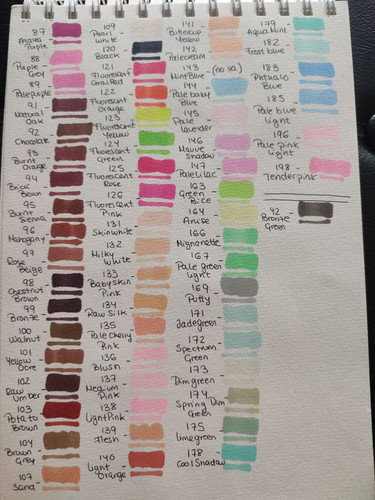 87
Azalea
Purple
88
Purple
Grey
89
Palepurple
91
Natural
Oak
92
Chocolate
93
Burnt
Orange
94
Brick
Brown
95
Burnt
Sienna
96
Mahogany
97
Rose
Beige
98
Chestnut
Brown
99
Bronze
100
Walnut
101
Yellow
Ocre
102
Raw
Umber
103
Potato
Brown
104
Brown
Grey
107
Sand
109
Pearl
White
120
Black
121
Fluorescent
Coral Red
122
Fluorescent
Orange
123
Fluorescent
Yellow
124
Fluorescent
Green
125
Fluorescent
Rose
126
Fluorescent
Pink
131
Skinwhite
132
Milky
White
133
Babyskin
Pink
134
Raw Silk
135
Pale Cherry
Pink
136
Blush
137
Medium
Pink
138
Light Pink
139
Flesh
140
Light
Orange
141
Buttercup
Yellow
142
Palecream
143
Mint Blue
144
Pale baby
Blue
145
Pale
lavender
146
Mauve
Shadow
147
Pale Lilac
163
Green
Bice
164
Anise
166
Mignonette
167
Pale green
light
169
Putty
171
Jadegreen
172
Spectrum
Green
173
Dim green
174
Spring Dim
Green
175
Limegreen
178
Cool Shadow
179
Aqua Mint
182
Frost blue
183
Phthalo
Blue
185
Pale blue
light
196
Pale pink
Light
198
Tender pink
42
Bronze
Green